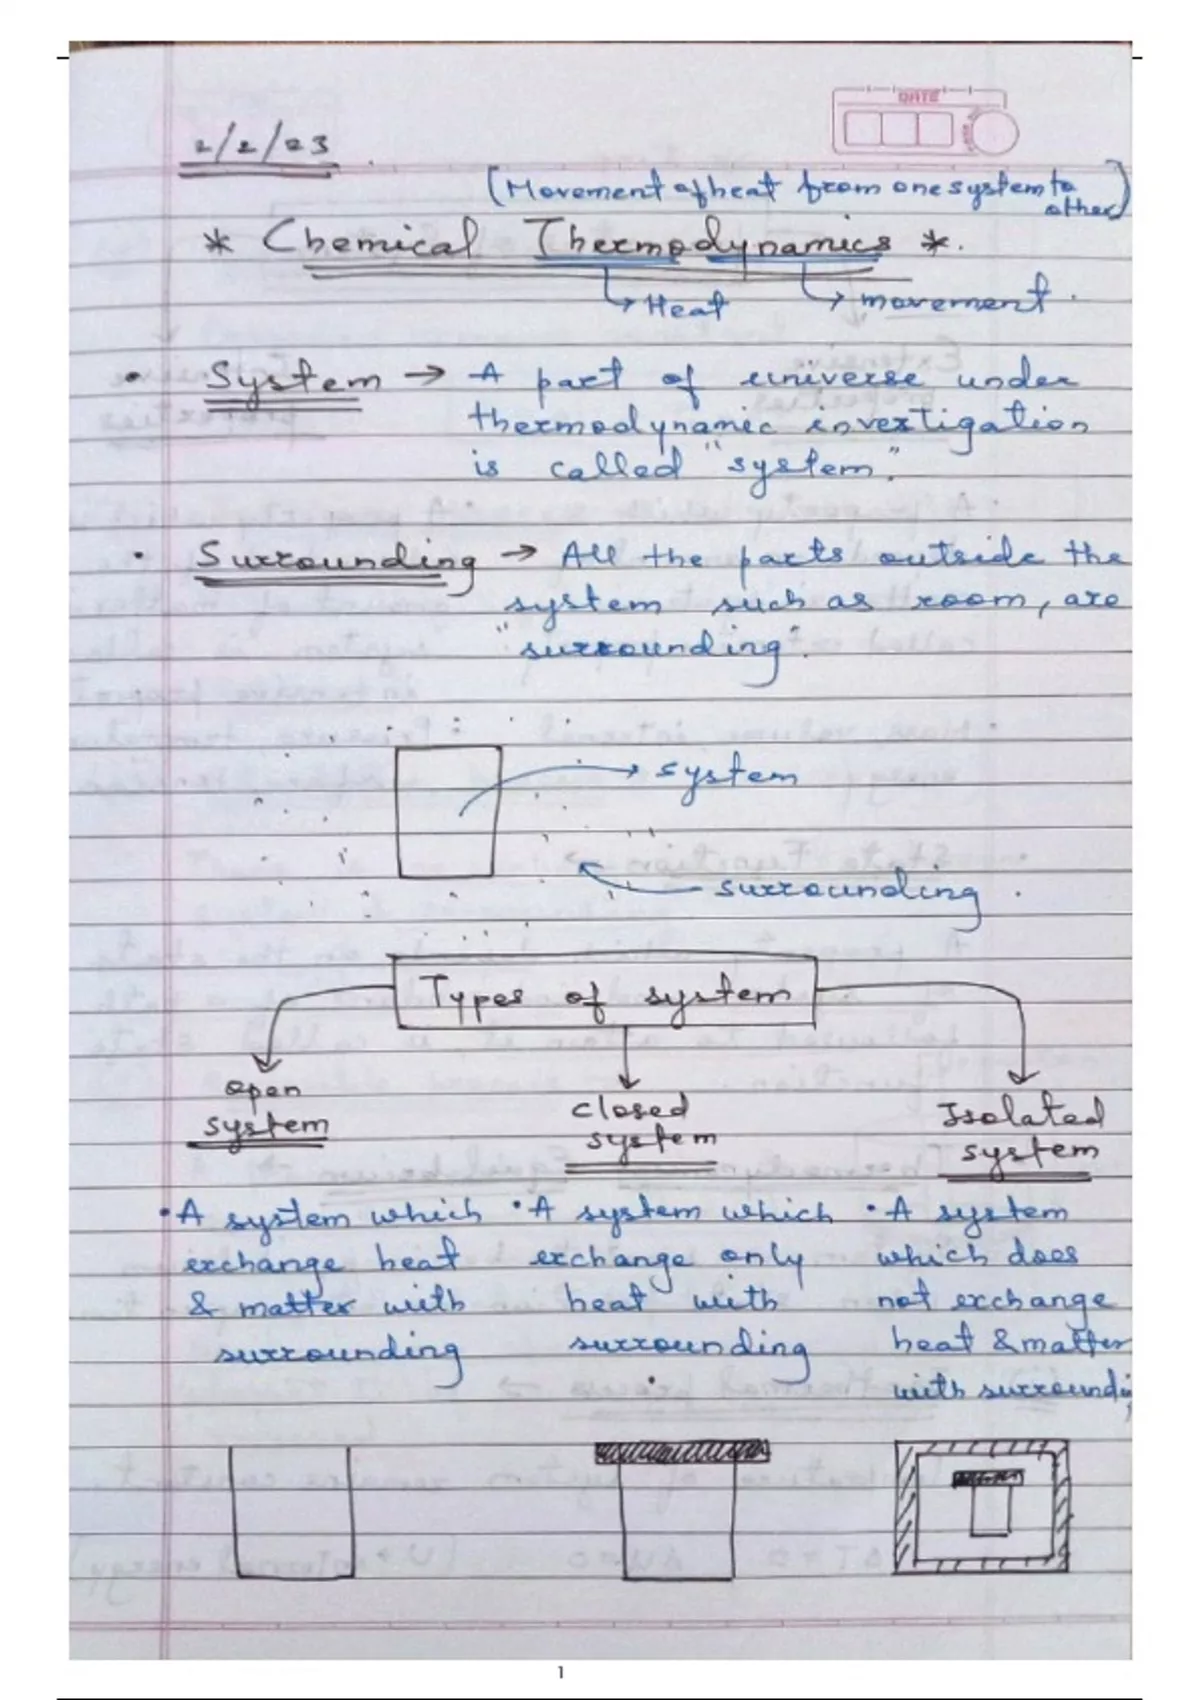 DATE
2/2/23
(Movement of heat from one system to other)
* Chemical Thermodynamics *.
Heat
movement.
• System → A part of universe under
thermodynamic investigation
is called "system".
• Surrounding → All the parts outside the
system such as room, are
"surrounding".
system
surrounding.
Types of system
open
system
closed
system
Isolated
system
• A system which
exchange heat
& matter with
surrounding
• A system which
exchange only
heat with
surrounding
• A system
which does
not exchange
heat & matter
with surroundi
1